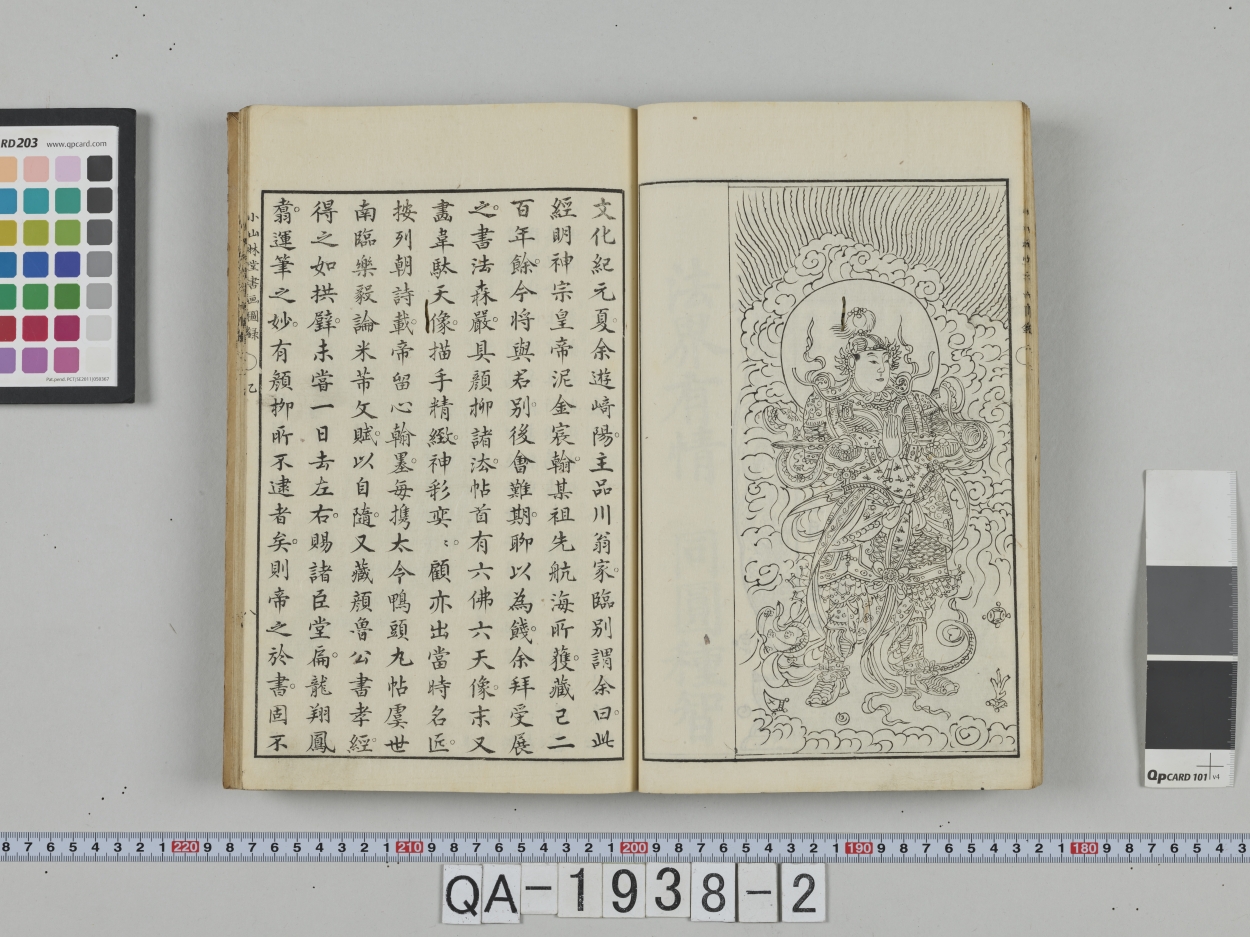 文化紀元夏余遊崎陽主品川翁家臨別謂余曰此
經明神宗皇帝泥金宸翰某祖先航海所獲藏已二
百年餘今將與君別後會難期聊以為餞余拜受展
之書法森嚴具顏柳諸法帖首有六佛六天像末又
畵韋馱天像描手精緻神彩奕〻顧亦出當時名匠
按列朝詩載帝留心翰墨每携太令鴨頭丸帖虞世
南臨樂毅論米芾文賦以自隨又藏顏魯公書孝經
得之如拱璧未嘗一日去左右賜諸臣堂扁龍翔鳳
翥運筆之妙有顏柳所不逮者矣則帝之於書固不
小山林堂書画圖録
乙
八
RD203 www.qpcard.com
QpCARD 101 v4
8 7 6 5 4 3 2 1 220 9 8 7 6 5 4 3 2 1 210 9 8 7 6 5 4 3 2 1 200 9 8 7 6 5 4 3 2 1 190 9 8 7 6 5 4 3 2 1 180 9 8 7 6 5 4 3
QA-1938-2